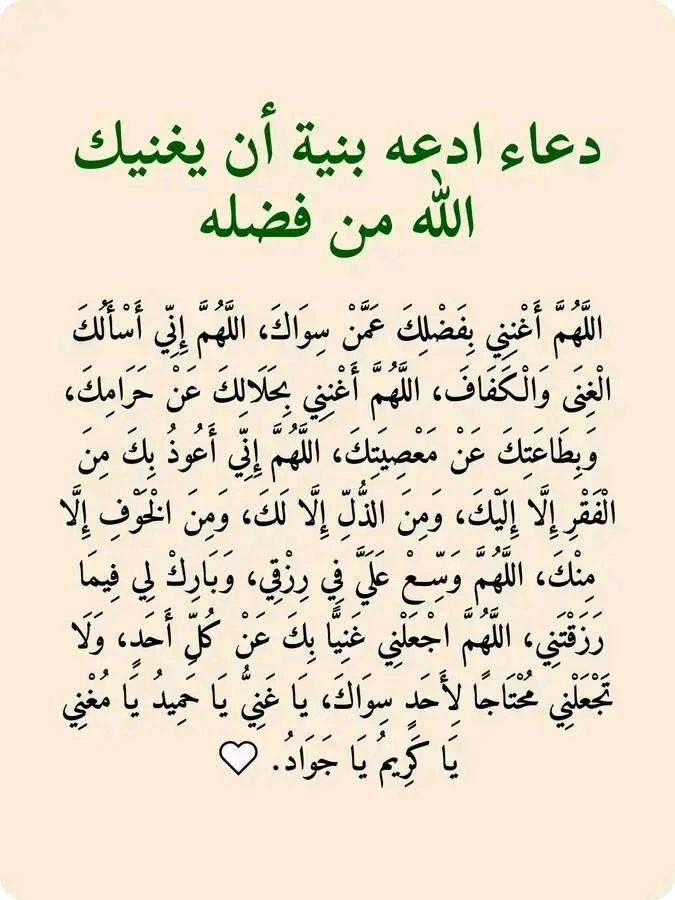 دعاء ادعه بنية أن يغنيك
الله من فضله
اللَّهُمَّ أَغْنِنِي بِفَضْلِكَ عَمَّنْ سِوَاكَ، اللَّهُمَّ إِنِّي أَسْأَلُكَ
الْغِنَى وَالْكَفَافَ، اللَّهُمَّ أَغْنِنِي بِحَلَالِكَ عَنْ حَرَامِكَ،
وَبِطَاعَتِكَ عَنْ مَعْصِيَتِكَ، اللَّهُمَّ إِنِّي أَعُوذُ بِكَ مِنَ
الْفَقْرِ إِلَّا إِلَيْكَ، وَمِنَ الذُّلِّ إِلَّا لَكَ، وَمِنَ الْخَوْفِ إِلَّا
مِنْكَ، اللَّهُمَّ وَسِّعْ عَلَيَّ فِي رِزْقِي، وَبَارِكْ لِي فِيمَا
رَزَقْتَنِي، اللَّهُمَّ اجْعَلْنِي غَنِيًّا بِكَ عَنْ كُلِّ أَحَدٍ، وَلَا
تَجْعَلْنِي مُحْتَاجًا لِأَحَدٍ سِوَاكَ، يَا غَنِيُّ يَا حَمِيدُ يَا مُغْنِي
يَا كَرِيمُ يَا جَوَادُ. 🤍